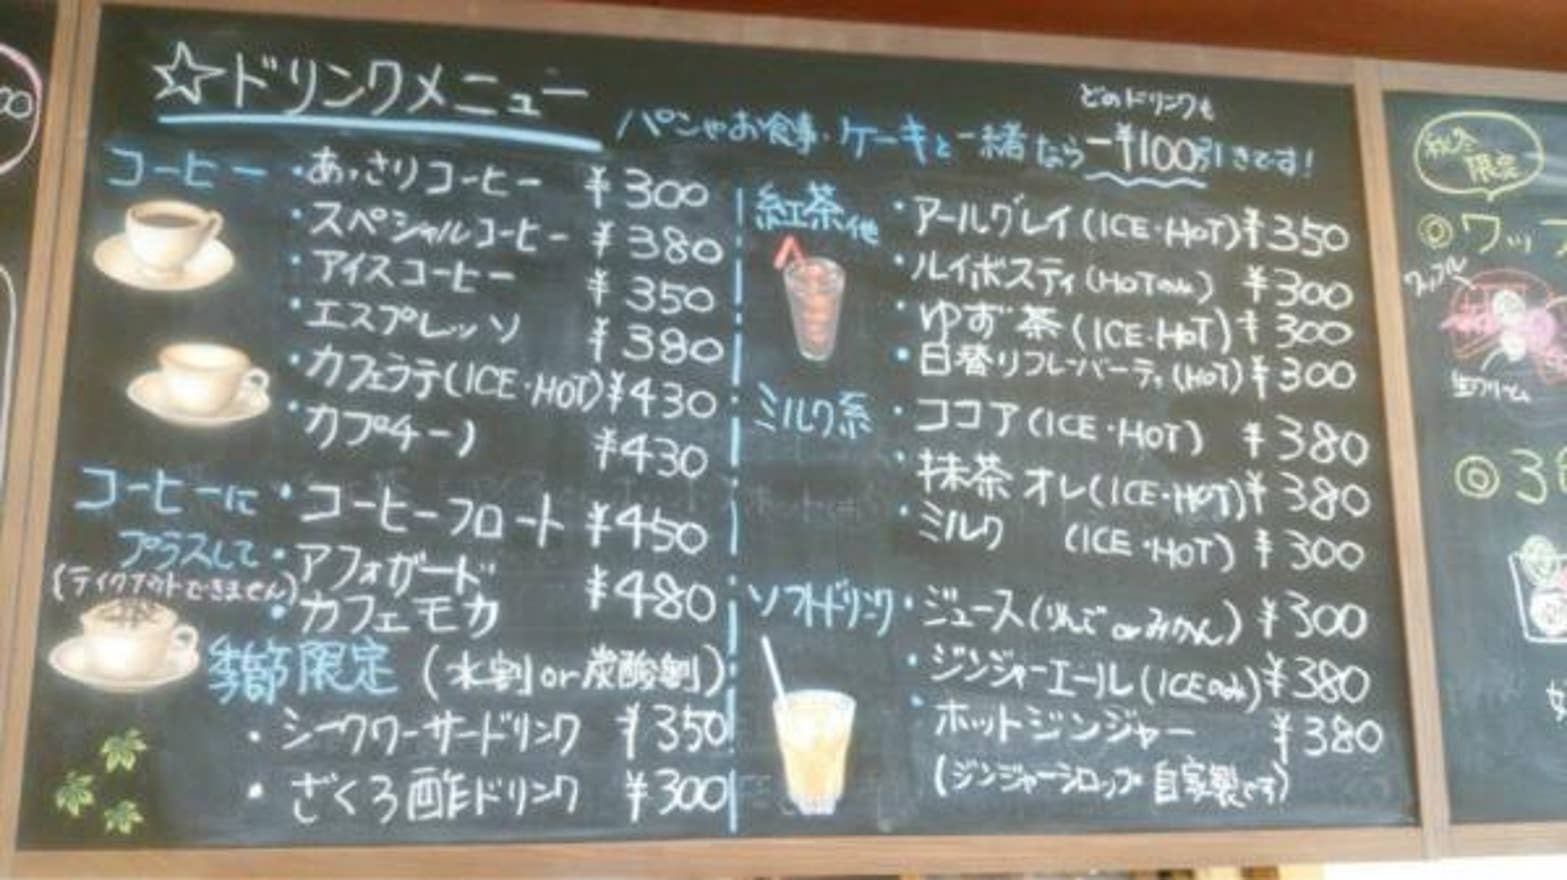 ☆ドリンクメニュー
どのドリンクも
パンやお食事・ケーキと一緒なら-¥100引きです!
コーヒー
・あっさりコーヒー ¥300
・スペシャルコーヒー ¥380
・アイスコーヒー ¥350
・エスプレッソ ¥380
・カフェラテ(ICE・HOT) ¥430
・カプチーノ ¥430
コーヒーに
プラスして
(テイクアウトできません)
・コーヒーフロート ¥450
・アフォガード ¥480
・カフェモカ
季節限定 (水割or炭酸割)
・シークワーサードリンク ¥350
・ざくろ酢ドリンク ¥300
紅茶他
・アールグレイ(ICE・HOT) ¥350
・ルイボスティ(HOTのみ) ¥300
・ゆず茶(ICE・HOT) ¥300
・日替りフレーバーティ(HOT) ¥300
ミルク系
・ココア(ICE・HOT) ¥380
・抹茶オレ(ICE・HOT) ¥380
・ミルク (ICE・HOT) ¥300
ソフトドリンク
・ジュース(りんごorみかん) ¥300
・ジンジャーエール(ICEのみ) ¥380
・ホットジンジャー ¥380
(ジンジャーシロップ自家製です)
限定
◎ワッフ
ワッフル
生クリーム
◎3